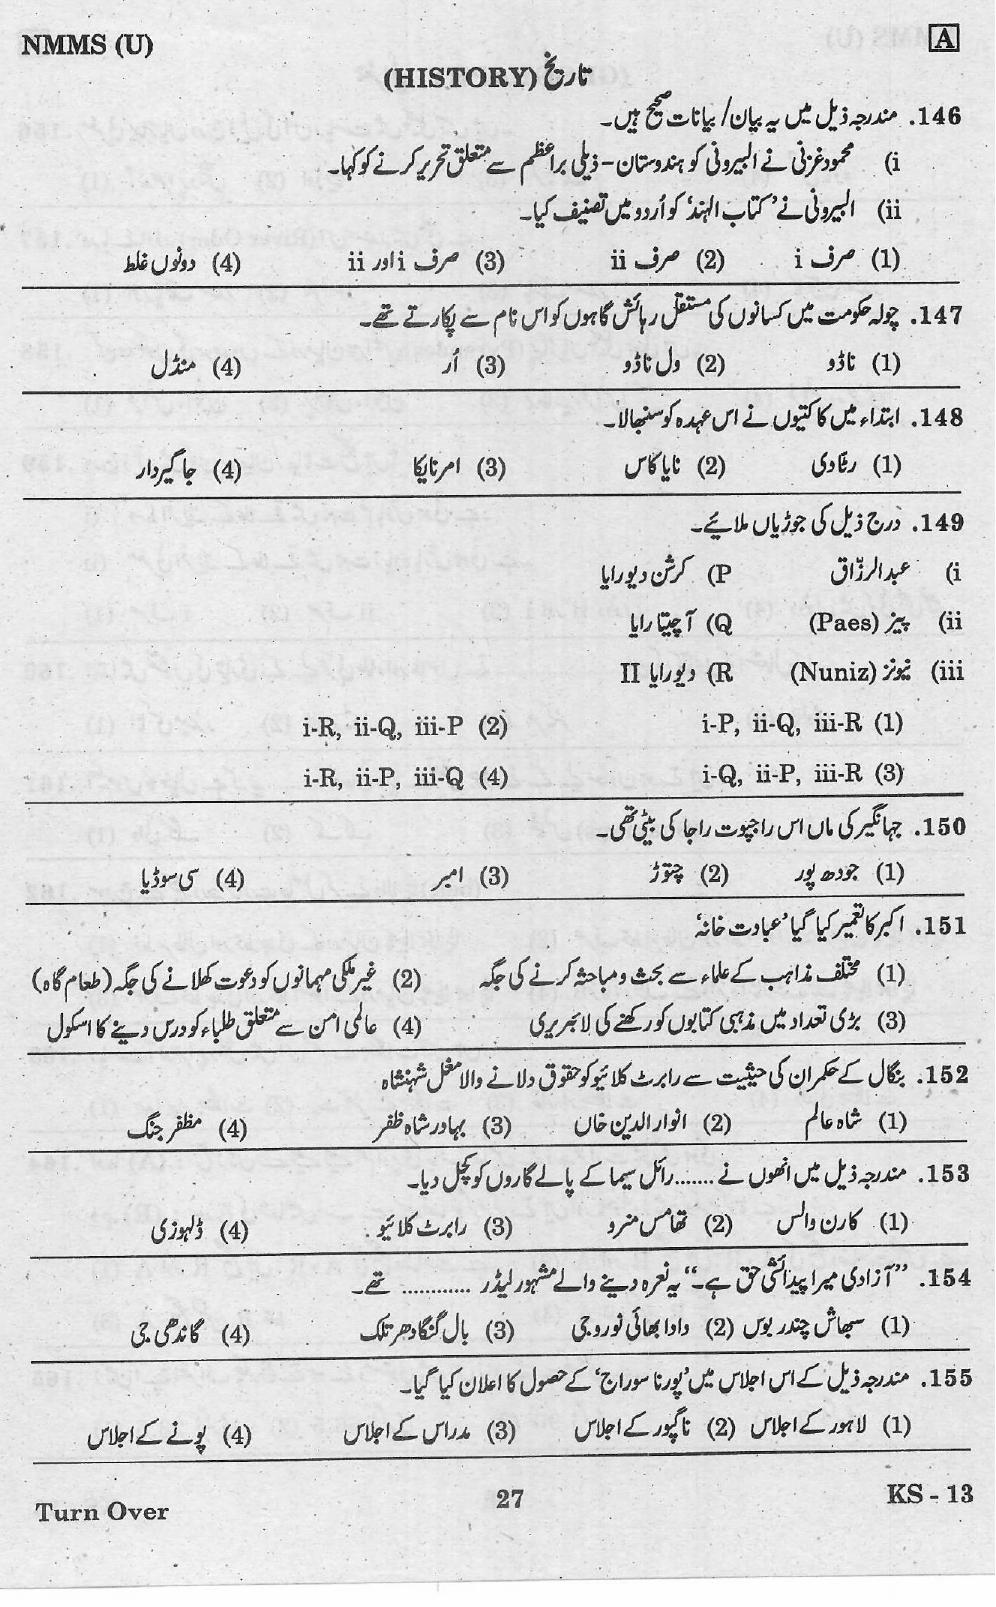 NMMS (U)
A
تاریخ (HISTORY)
146. مندرجہ ذیل میں یہ بیان/ بیانات صحیح ہیں۔
i) محمود غزنی نے البیرونی کو ہندوستان - ذیلی براعظم سے متعلق تحریر کرنے کو کہا۔
ii) البیرونی نے ’کتاب الہند‘ کو اُردو میں تصنیف کیا۔
(1) صرف i (2) صرف ii (3) صرف i اور ii (4) دونوں غلط
147. چولہ حکومت میں کسانوں کی مستقل رہائش گاہوں کو اس نام سے پکارتے تھے۔
(1) ناڈو (2) ول ناڈو (3) اُر (4) منڈل
148. ابتداء میں کاکتیوں نے اس عہدہ کو سنبھالا۔
(1) رٹادی (2) نایاکاس (3) امرنایکا (4) جاگیردار
149. درج ذیل کی جوڑیاں ملائیے۔
i) عبدالرزّاق P) کرشن دیورایا
ii) پیز (Paes) Q) آچیتا رایا
iii) نیونز (Nuniz) R) دیورایا II
(1) i-P, ii-Q, iii-R (2) i-R, ii-Q, iii-P
(3) i-Q, ii-P, iii-R (4) i-R, ii-P, iii-Q
150. جہانگیر کی ماں اس راجپوت راجا کی بیٹی تھی۔
(1) جودھ پور (2) چتوڑ (3) امبر (4) سی سوڈیا
151. اکبر کا تعمیر کیا گیا ’عبادت خانہ‘
(1) مختلف مذاہب کے علماء سے بحث و مباحثہ کرنے کی جگہ (2) غیر ملکی مہمانوں کو دعوت کھلانے کی جگہ (طعام گاہ)
(3) بڑی تعداد میں مذہبی کتابوں کو رکھنے کی لائبریری (4) عالمی امن سے متعلق طلباء کو درس دینے کا اسکول
152. بنگال کے حکمران کی حیثیت سے رابرٹ کلائیو کو حقوق دلانے والا مغل شہنشاہ
(1) شاہ عالم (2) انوار الدین خاں (3) بہادر شاہ ظفر (4) مظفر جنگ
153. مندرجہ ذیل میں انھوں نے ....... رائل سیما کے پالے گاروں کو کچل دیا۔
(1) کارن والس (2) تھامس منرو (3) رابرٹ کلائیو (4) ڈلہوزی
154. ”آزادی میرا پیدائشی حق ہے۔“ یہ نعرہ دینے والے مشہور لیڈر ............ تھے۔
(1) سبھاش چندر بوس (2) دادا بھائی نوروجی (3) بال گنگادھر تلک (4) گاندھی جی
155. مندرجہ ذیل کے اس اجلاس میں ’پورنا سوراج‘ کے حصول کا اعلان کیا گیا۔
(1) لاہور کے اجلاس (2) ناگپور کے اجلاس (3) مدراس کے اجلاس (4) پونے کے اجلاس
Turn Over
27
KS - 13